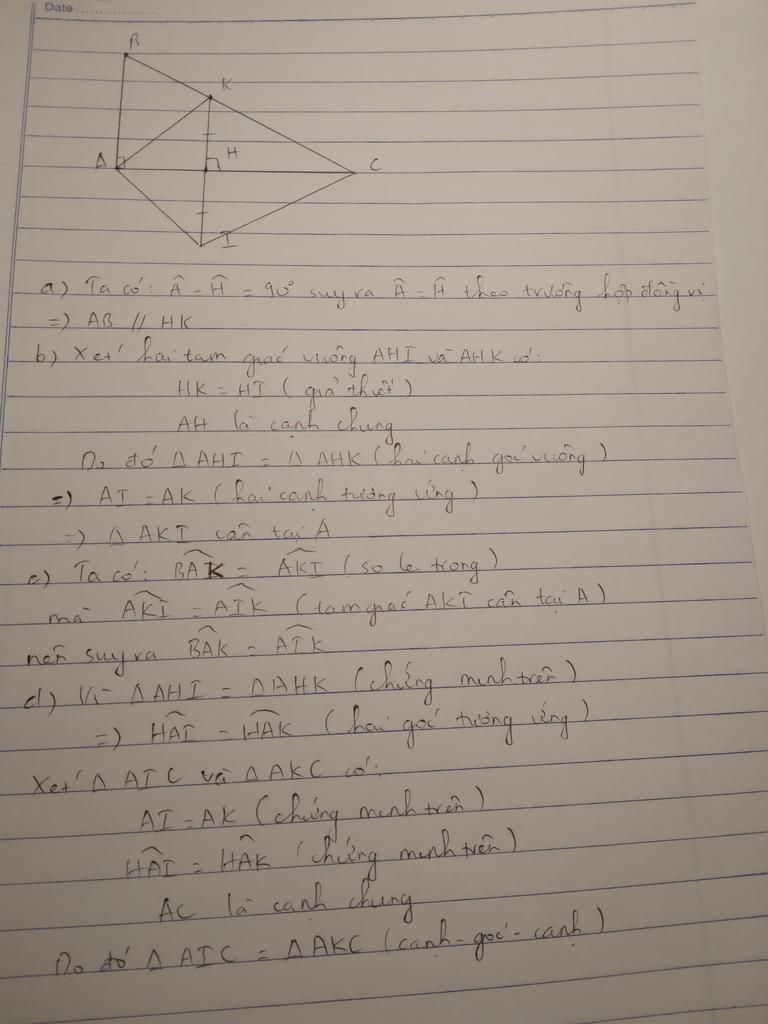 Date
B
K
A
H
C
I
a) Ta có: Â = Ĥ = 90° suy ra Â = Ĥ theo trường hợp đồng vị
=) AB // HK
b) Xét hai tam giác vuông AHI và AHK có:
HK = HI ( giả thiết )
AH là cạnh chung
Do đó Δ AHI = Δ AHK ( hai cạnh góc vuông )
=) AI = AK ( hai cạnh tương ứng )
=) Δ AKI cân tại A
c) Ta có: BAK = AKI ( so le trong )
mà AKI = AIK ( tam giác AKI cân tại A )
nên suy ra BAK = AIK
d) Vì Δ AHI = Δ AHK ( chứng minh trên )
=) HAI = HAK ( hai góc tương ứng )
Xét Δ AIC và Δ AKC có:
AI = AK ( chứng minh trên )
HAI = HAK ( chứng minh trên )
AC là cạnh chung
Do đó Δ AIC = Δ AKC ( cạnh - góc - cạnh )